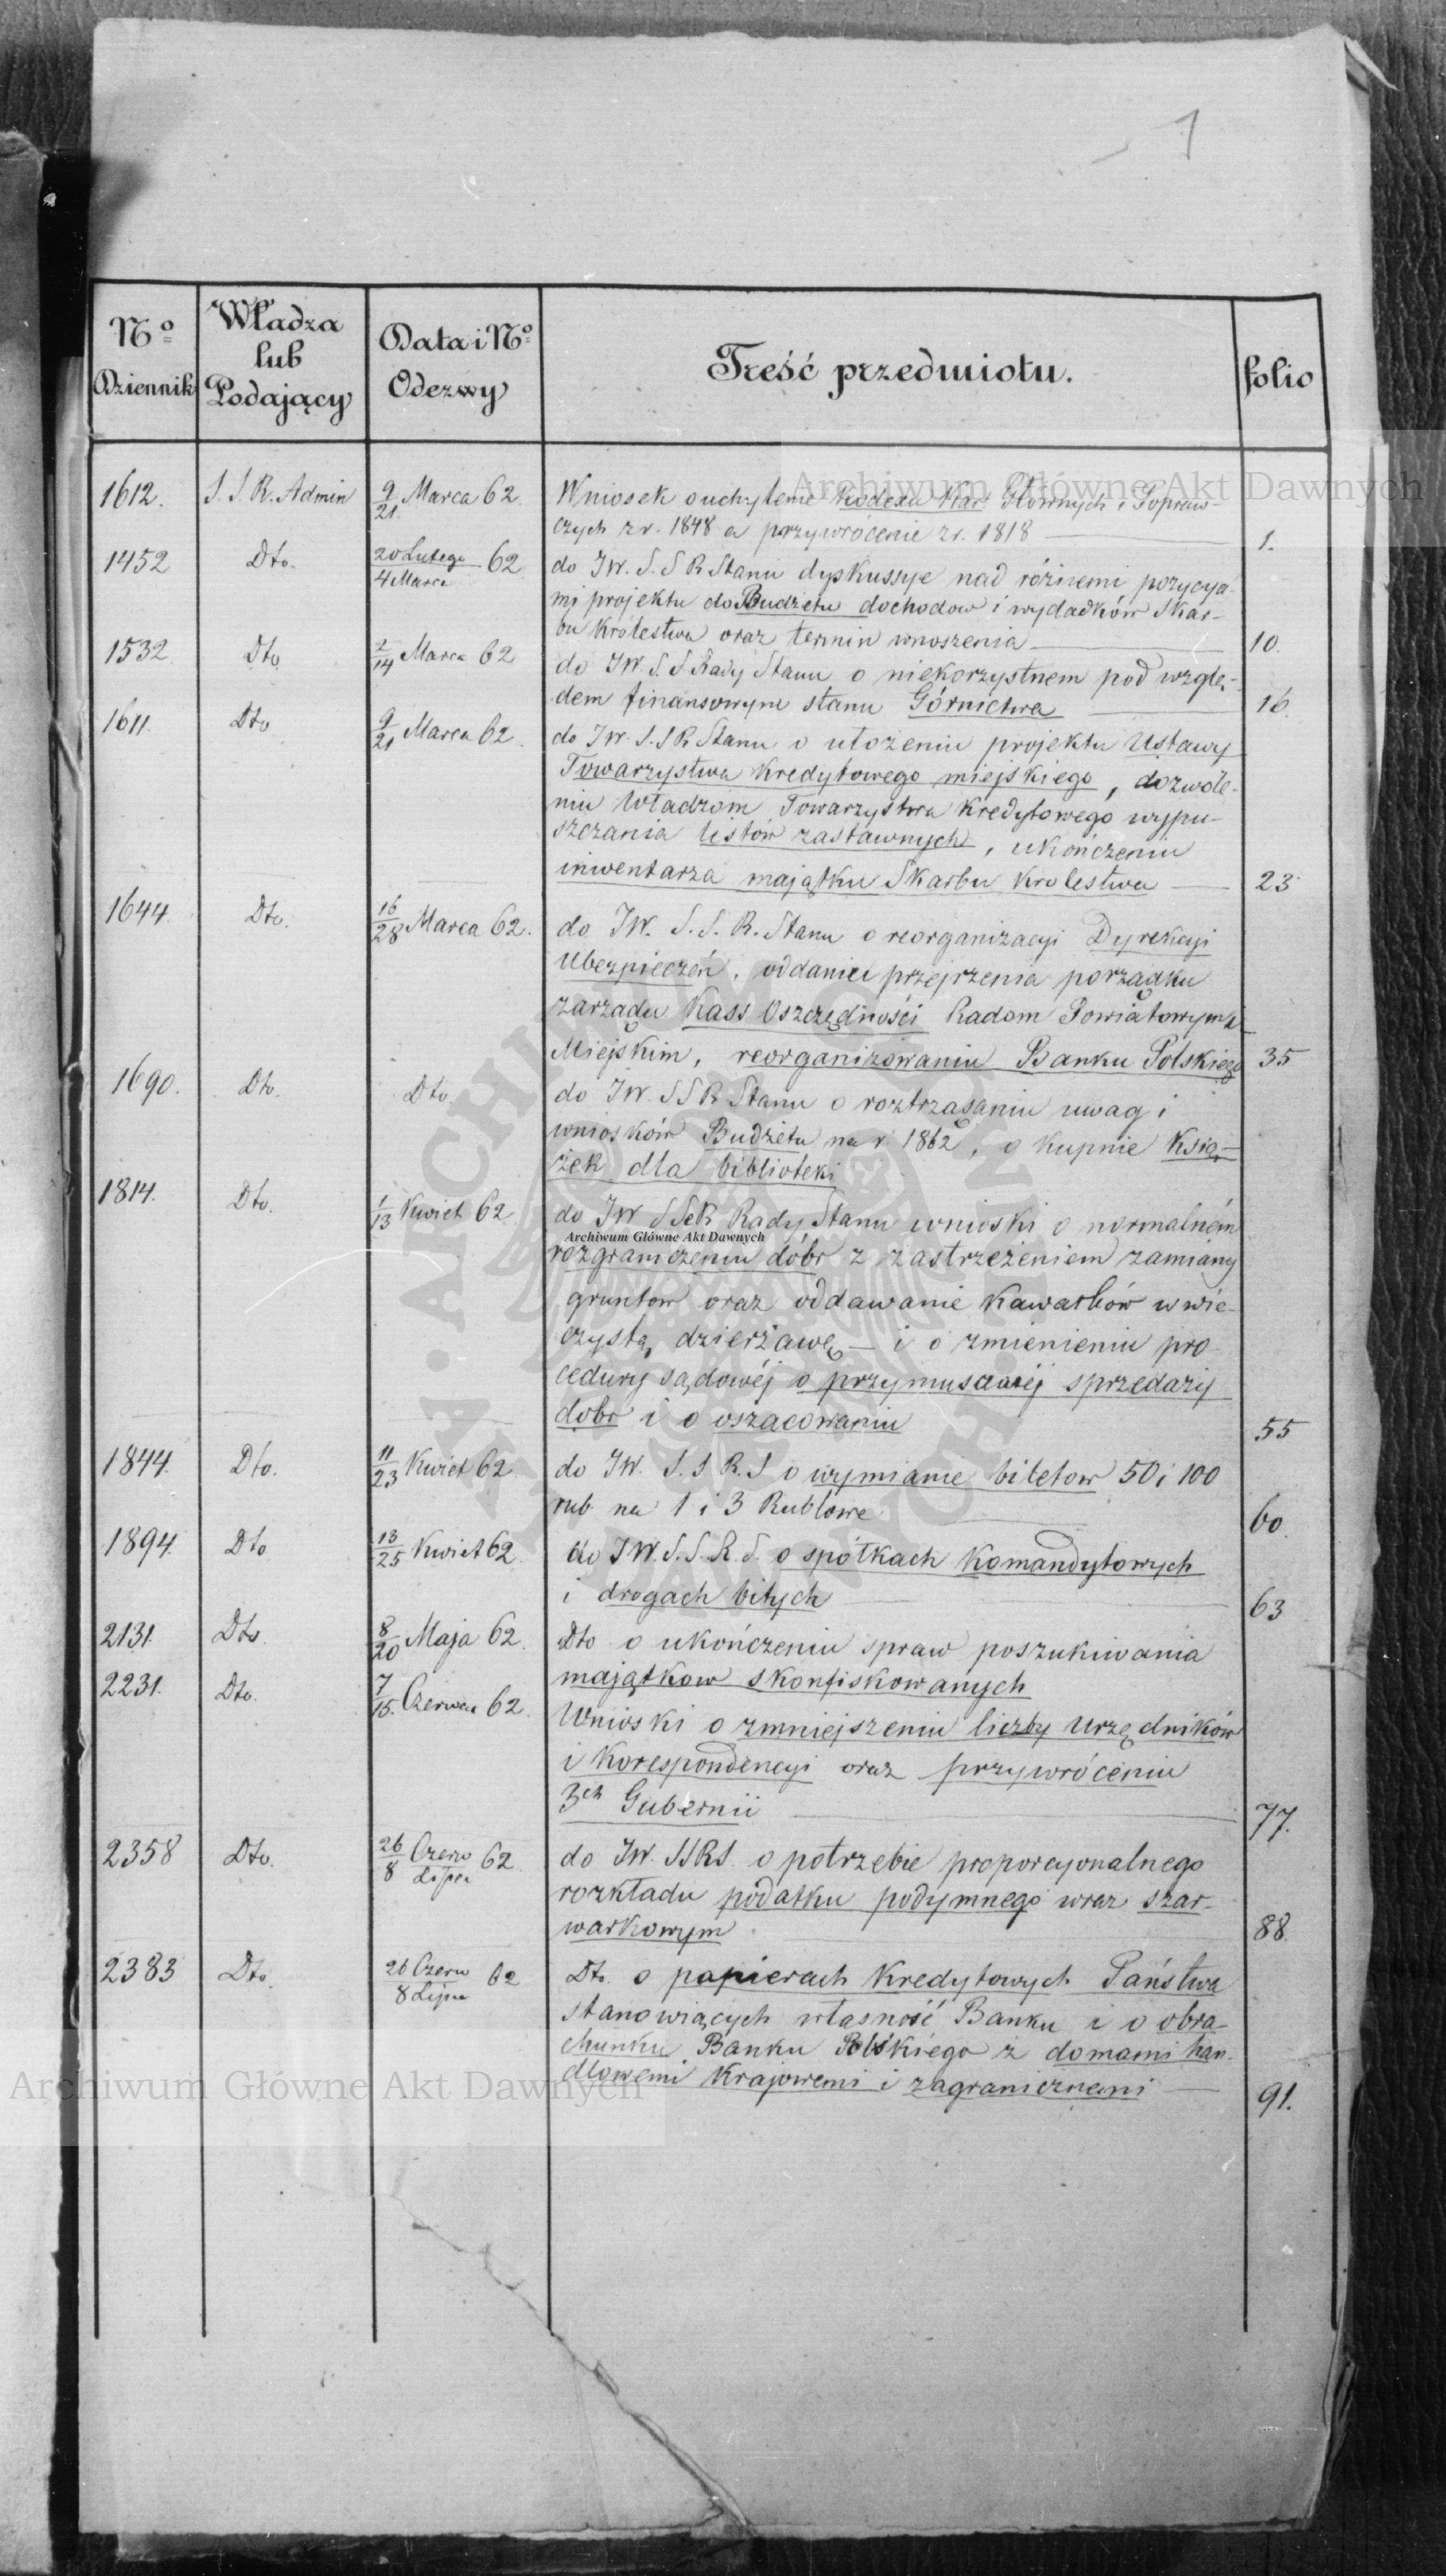 1
No Dziennik
Władza lub Podający
Data i No Odezwy
Treść przedmiotu.
folio
1612. S. S. R. Admin 9/21 Marca 62. Wniosek o uchylenie Kodexu Kar Głównych i Popraw-
czych z r. 1848 a przywrócenie z r. 1818 1.
1452 Dto. 20 Lutego/4 Marca 62 do JW. S. S R Stanu dyskussye nad różnemi pozycya-
mi projektu do Budżetu dochodow i wydadków Skar-
bu Królestwa oraz termin wnoszenia 10.
1532 Dto 2/14 Marca 62 do JW. S. S Rady Stanu o niekorzystnem pod wzglę-
dem finansowym stanu Górnictwa 16.
1611. Dto 9/21 Marca 62. do JW. S. S R Stanu o ułożeniu projektu Ustawy
Towarzystwa Kredytowego miejskiego, dozwole-
niu Władzom Towarzystwa Kredytowego wypu-
szczania listów zastawnych, ukończeniu
inwentarza majątku Skarbu Krolestwa 23
1644. Dto. 16/28 Marca 62. do JW. S. S. R. Stanu o reorganizacyi Dyrekcyi
Ubezpieczeń, oddaniu przejrzenia porządku
zarządu Kass Oszczędności Radom Powiatowym i
Miejskim, reorganizowaniu Banku Polskiego 35
1690. Dto. Dto. do JW. S S R Stanu o roztrząsaniu uwag i
wniosków Budżetu na r. 1862, o kupnie Ksią-
żek dla biblioteki
1814. Dto. 1/13 Kwiet 62. do JW S S R Rady Stanu wnioski o normalném
Archiwum Główne Akt Dawnych
rozgraniczeniu dóbr z zastrzeżeniem zamiany
gruntow oraz oddawanie Kawałków w wie-
czystą dzierżawę — i o zmienieniu pro-
cedury sądowéj o przymusowéj sprzedaży
dobr i o oszacowaniu 55
1844. Dto. 11/23 Kwiet 62. do JW. S. S R. S o wymianie biletow 50 i 100
rub na 1 i 3 Rublowe 60.
1894. Dto 13/25 Kwiet 62. do JW. S. S. R. S. o spółkach Komandytowych
i drogach bitych 63
2131. Dto. 8/20 Maja 62. Dto o ukończeniu spraw poszukiwania
majątkow skonfiskowanych
2231. Dto. 7/15. Czerwca 62. Wnioski o zmniejszeniu liczby Urzędników
i Korespondencyi oraz przywróceniu
3ch Gubernii 77.
2358 Dto. 26/8 Czerw/Lipca 62 do JW. S S R S. o potrzebie proporcyonalnego
rozkładu podatku podymnego wraz szar-
warkowym 88.
2383 Dto. 26 Czerw/8 Lipca 62 Dto. o papierach Kredytowych Państwa
stanowiących własność Banku i o obra-
chunku Banku Polskiego z domami han-
dlowemi Krajowemi i zagranicznemi 91.
Archiwum Główne Akt Dawnych
Archiwum Główne Akt Dawnych